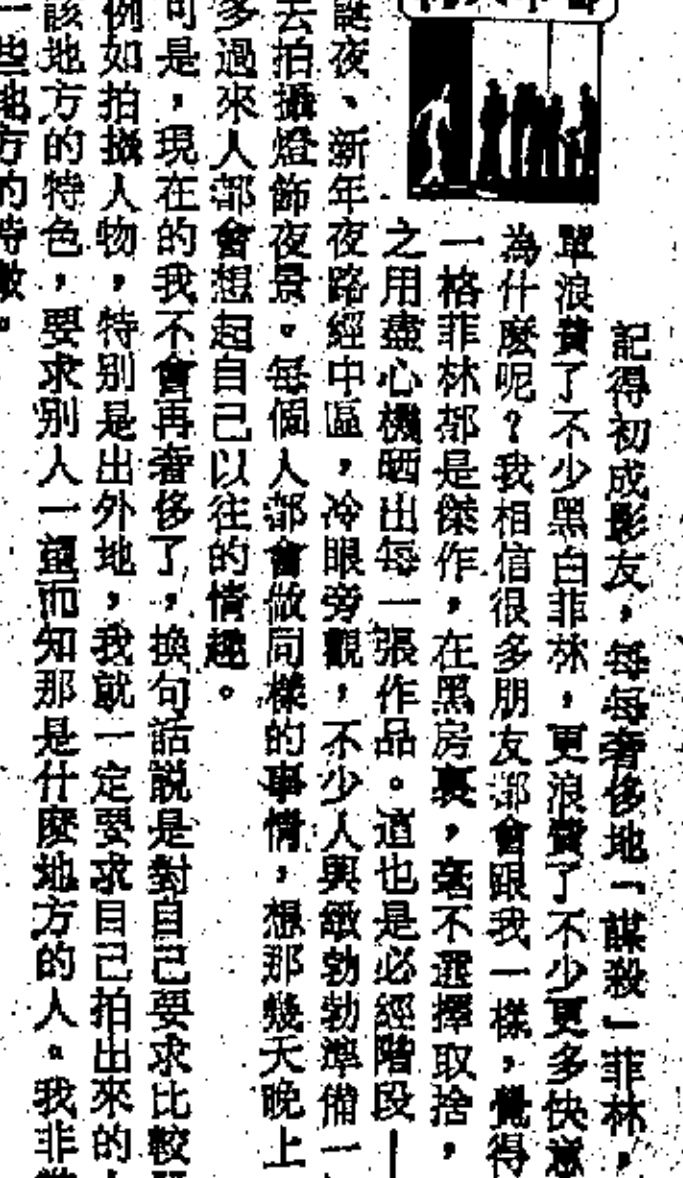 記得初成影友，每每奢侈地「謀殺」菲林，
單浪費了不少黑白菲林，更浪費了不少更多快意
為什麼呢？我相信很多朋友都會跟我一樣，覺得
一格菲林都是傑作，在黑房裏，毫不選擇取捨，
之用盡心機晒出每一張作品。這也是必經階段—
誕夜、新年夜路經中區，冷眼旁觀，不少人興緻勃勃準備一
去拍攝燈飾夜景。每個人都會做同樣的事情，想那幾天晚上
多過來人都會想起自己以往的情趣。
可是，現在的我不會再奢侈了，換句話說是對自己要求比較
例如拍攝人物，特別是出外地，我就一定要求自己拍出來的
該地方的特色，要求別人一望而知那是什麼地方的人。我非
一些地方的特徵。